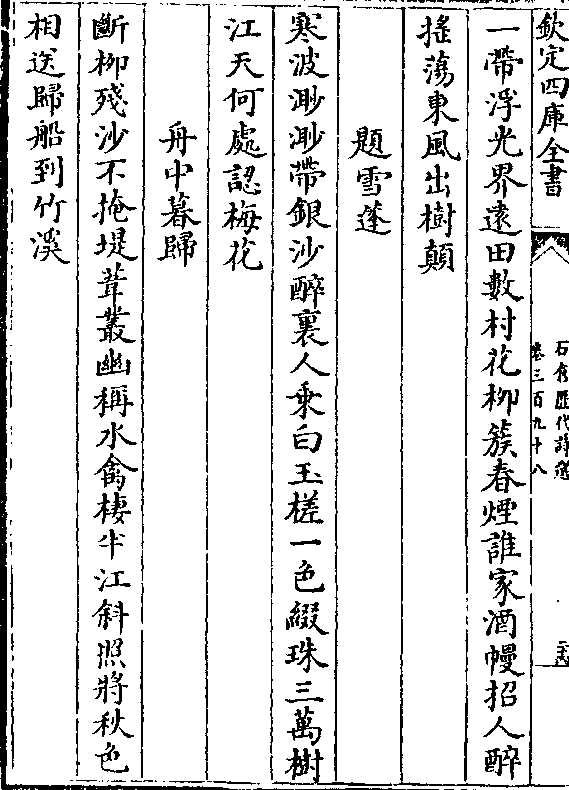 欽定四庫全書
石倉歷代詩選
卷三百九十八
一帶浮光界遠田數村花柳簇春煙誰家酒幔招人醉
搖蕩東風出樹顛
題雪蓬
寒波渺渺帶銀沙醉裏人乘白玉槎一色綴珠三萬樹
江天何處認梅花
舟中暮歸
斷柳殘沙不掩堤葦叢幽稱水禽棲半江斜照將秋色
相送歸船到竹溪